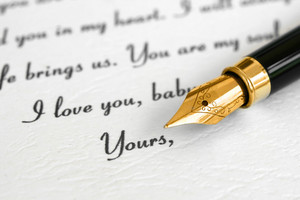 you in my heart. I will
fe brings us. You are my soul
I love you, baby
Yours,